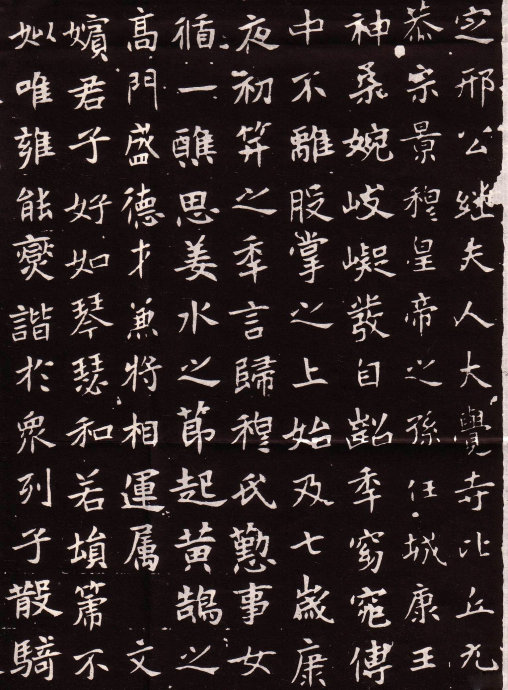 定邢公継夫人大覺寺比丘元
恭宗景穆皇帝之孫任城康王
神桒婉岐嶷發自齠季窈窕傅
中不離股掌之上始及七歲康
夜初笄之季言歸穆氏懃事女
循一醮思姜水之節起黃鵠之
高門盛德才兼將相運属　文
嬪君子好如琴瑟和若塤篪不
姒唯雍能燮諧於衆列子散騎